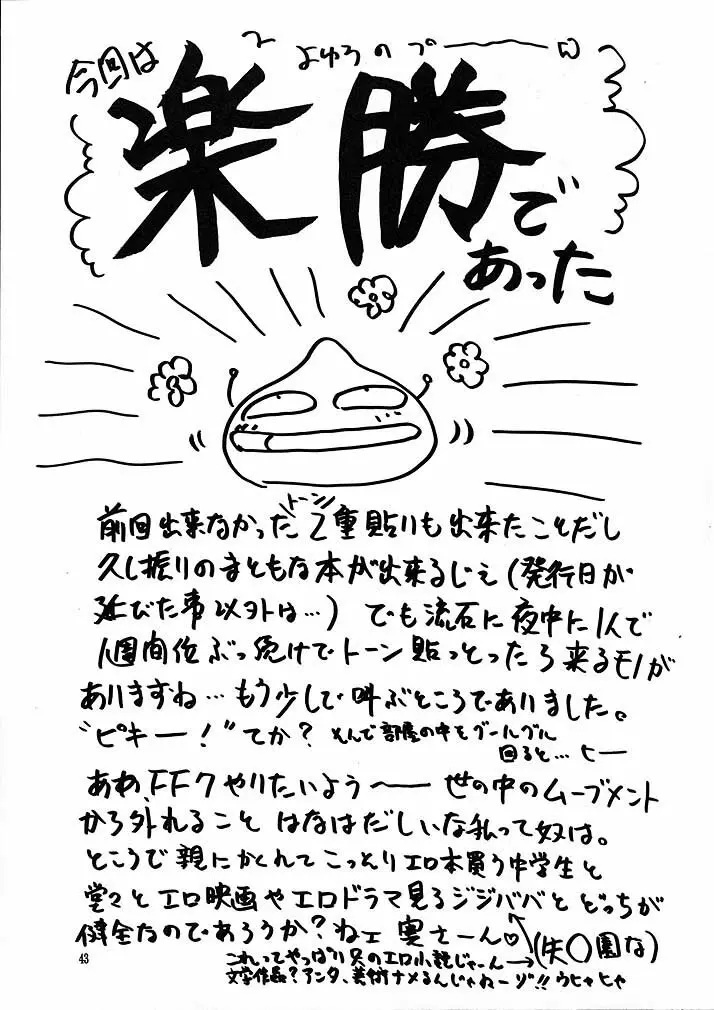 今回は
よゆうのプーーwo
楽勝で
あった
前回出来なかった2重貼りも出来たことだし
トーン
久し振りのまともな本が出来るじぇ(発行日が
延びた事以外は…)でも流石に夜中に1人で
1週間位ぶっ続けでトーン貼っとったら来るモノが
ありますね…もう少しで叫ぶところでありました。
"ピキー!"てか?そんで部屋の中をグールグル
回ると…ヒー
あわ、FF7やりたいよう〜―世の中のムーブメント
から外れることはなはだしいな私って奴は。
ところで親にかくれてこっそりエロ本買う中学生と
堂々とエロ映画やエロドラマ見るジジババとどっちが
健全なのであろうか?ねェ奥さーん♡(失〇園な)
これってやっぱり只のエロ小説じゃーん→
文学作品?アンタ、美術ナメるんじゃねーゾ!!ウヒャヒャ
43